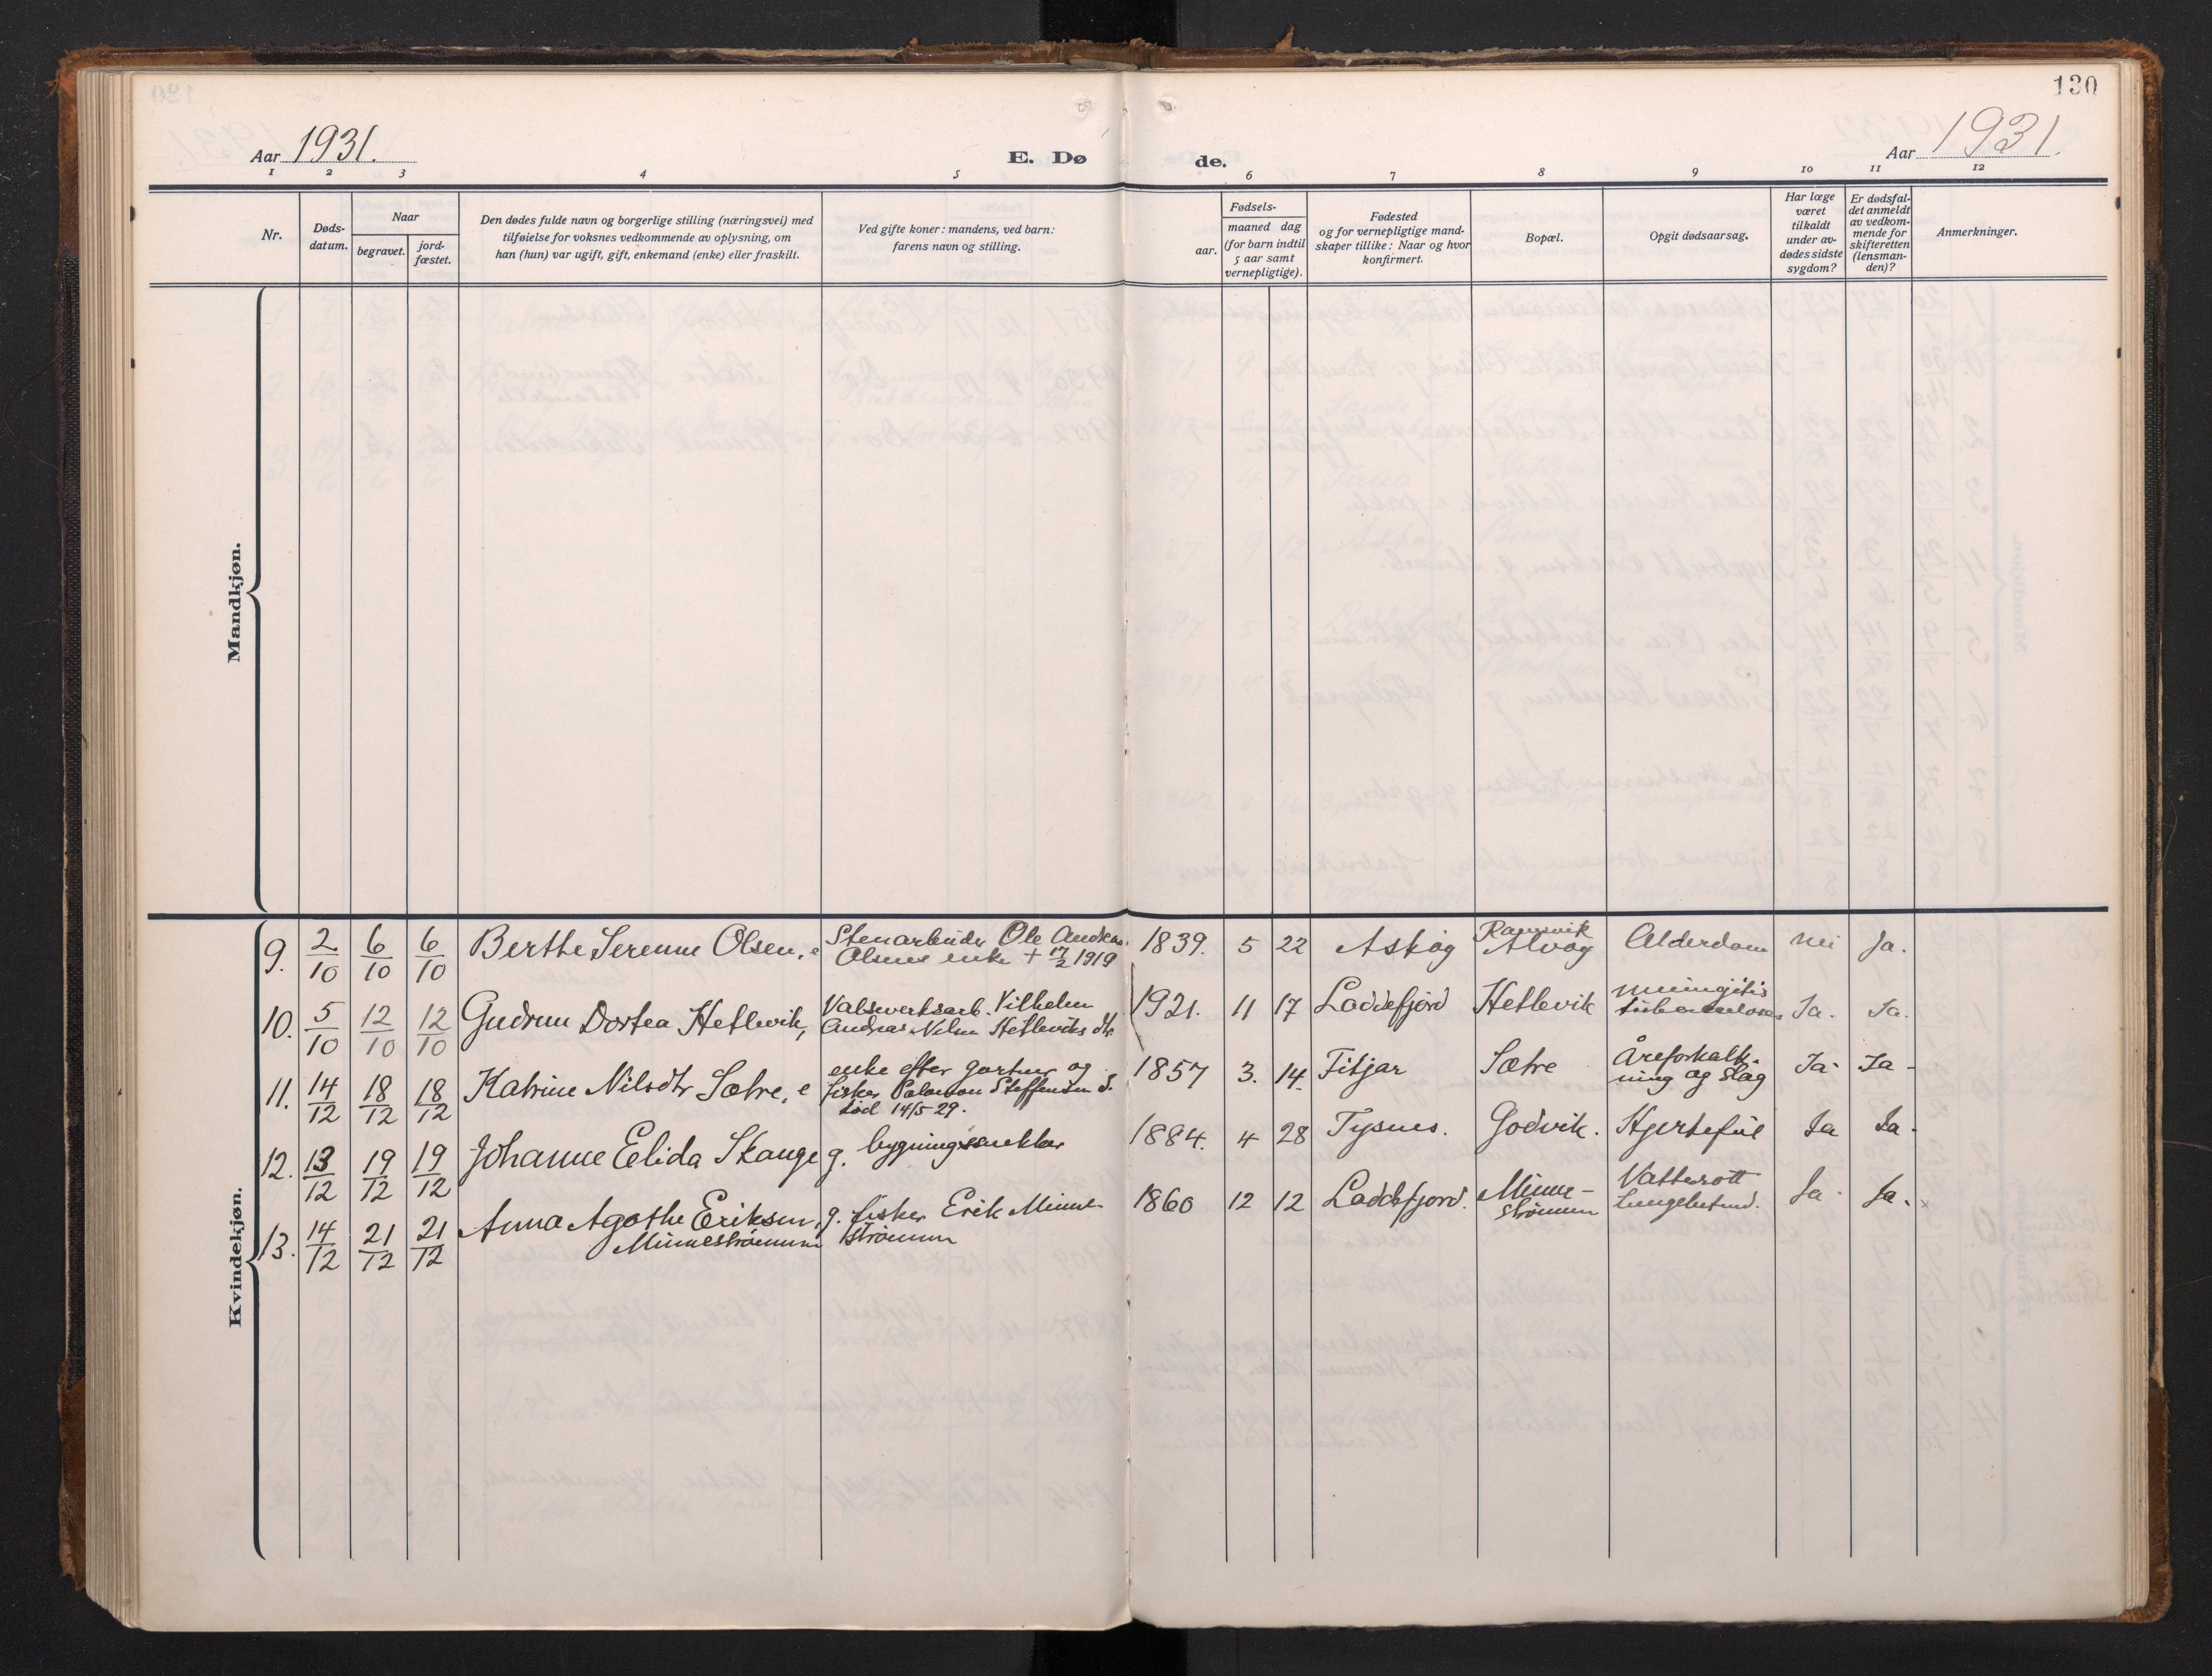 130
Aar 1931.
E. Dø de.
Aar 1931.
1 2 3 4 5 6 7 8 9 10 11 12
Nr.
Døds-
datum.
Naar
begravet.
jord-
fæstet.
Den dødes fulde navn og borgerlige stilling (næringsvei) med
tilføielse for voksnes vedkommende av oplysning, om
han (hun) var ugift, gift, enkemand (enke) eller fraskilt.
Ved gifte koner: mandens, ved barn:
farens navn og stilling.
Fødsels-
aar.
maaned dag
(for barn indtil
5 aar samt
vernepligtige).
Fødested
og for vernepligtige mand-
skaper tillike: Naar og hvor
konfirmert.
Bopæl.
Opgit dødsaarsag.
Har læge
været
tilkaldt
under av-
dødes sidste
sygdom?
Er dødsfal-
det anmeldt
av vedkom-
mende for
skifteretten
(lensman-
den)?
Anmerkninger.
Mandkjøn.
Kvindekjøn.
9. 2/10 6/10 6/10 Berthe Serenne Olsen, e Stenarbeider Ole Andreas
Olsens enke + 17/2 1919
1839. 5 22 Askøg Ramsvik
Alvøg Alderdom nei Ja.
10. 5/10 12/10 12/10 Gudrun Dortea Hetlevik, Valseverksarb. Vilhelm
Andreas Nilsen Hetleviks dtr
1921. 11 17 Laddefjord Hetlevik meningitis
tuberculoses Ja. Ja.
11. 14/12 18/12 18/12 Katrine Nilsdtr Sætre, e enke efter gartner og
fisker Salomon Steffensen S.
død 14/5 29.
1857 3. 14 Fitjar Sætre Åreforkalk-
ning og slag Ja. Ja -
12. 13/12 19/12 19/12 Johanne Elida Skauge g. bygningssnekker
1884. 4 28 Tysnes. Godvik. Hjertefeil Ja Ja.
13. 14/12 21/12 21/12 Anna Agathe Eriksen, g. fisker Erik Minne-
Minnestrømmen strømmen
1860 12 12 Laddefjord. Minne-
strømmen Vattersott
Lungebetend. Ja. Ja.